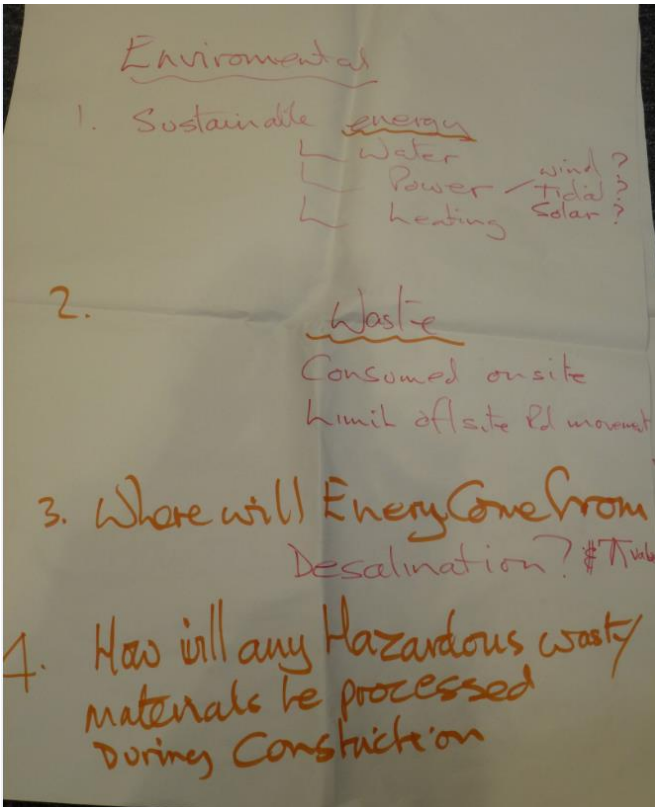 Enviromental
1. Sustainable energy
Water
Power wind ?
Tidal ?
heating Solar ?
2. Waste
Consumed onsite
Limit offsite Rd movement
3. Where will Enery Come from
Desalination ? $
4. How will any Hazardous waste/
materials be processed
During Constuction